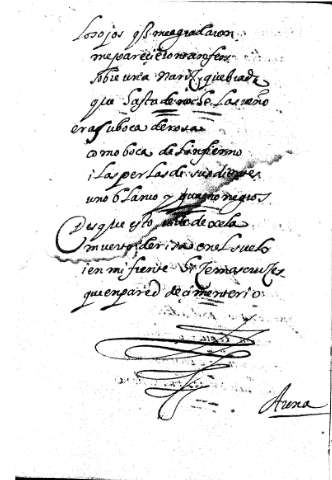 los ojos q̃ me agradaron
me parecieron tan feos
sobre una nariz quebrada
que hasta de noche las veo
era su boca de rosa
como boca de ynfierno
i las perlas de sus dientes
uno blanco y quatro negros
Des que esto de xela
muerto de risa en el suelo
i en mi frente mas cruzes
que en pared de cimenterio